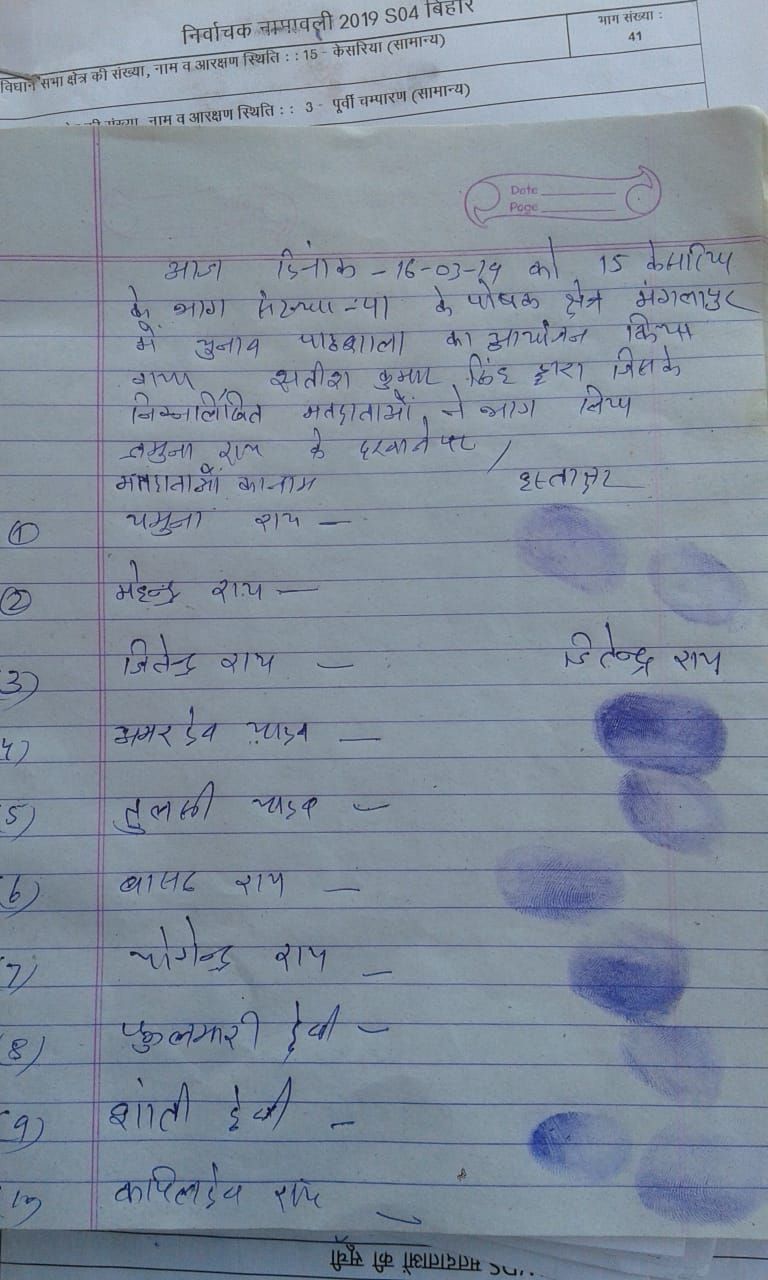 निर्वाचक नामावली 2019 S04 बिहार
भाग संख्या :
41
विधान सभा क्षेत्र की संख्या, नाम व आरक्षण स्थिति : : 15 - केसरिया (सामान्य)
नाम व आरक्षण स्थिति : : 3 - पूर्वी चम्पारण (सामान्य)
Date
Page
आज दिनांक -16-03-19 को 15 केसरिया
के भाग संख्या -41 के पोषक क्षेत्र मंगलापुर
में चुनाव पाठशाला का आयोजन किया
गया, सतीश कुमार सिंह द्वारा जिसके
निम्नलिखित मतदाताओं ने भाग लिया
जमुना राय के दरवाजे पर /
मतदाताओं का नाम हस्ताक्षर
① यमुना राय —
② महेन्द्र राय —
3) जितेन्द्र राय — जितेन्द्र राय
4) अमरदेव यादव —
5) तुलसी यादव —
6) राय —
7) योगेन्द्र राय —
8) फुलमारी देवी —
9) शांती देवी —
10 कपिलदेव राय —
मतदाताओं की सूची